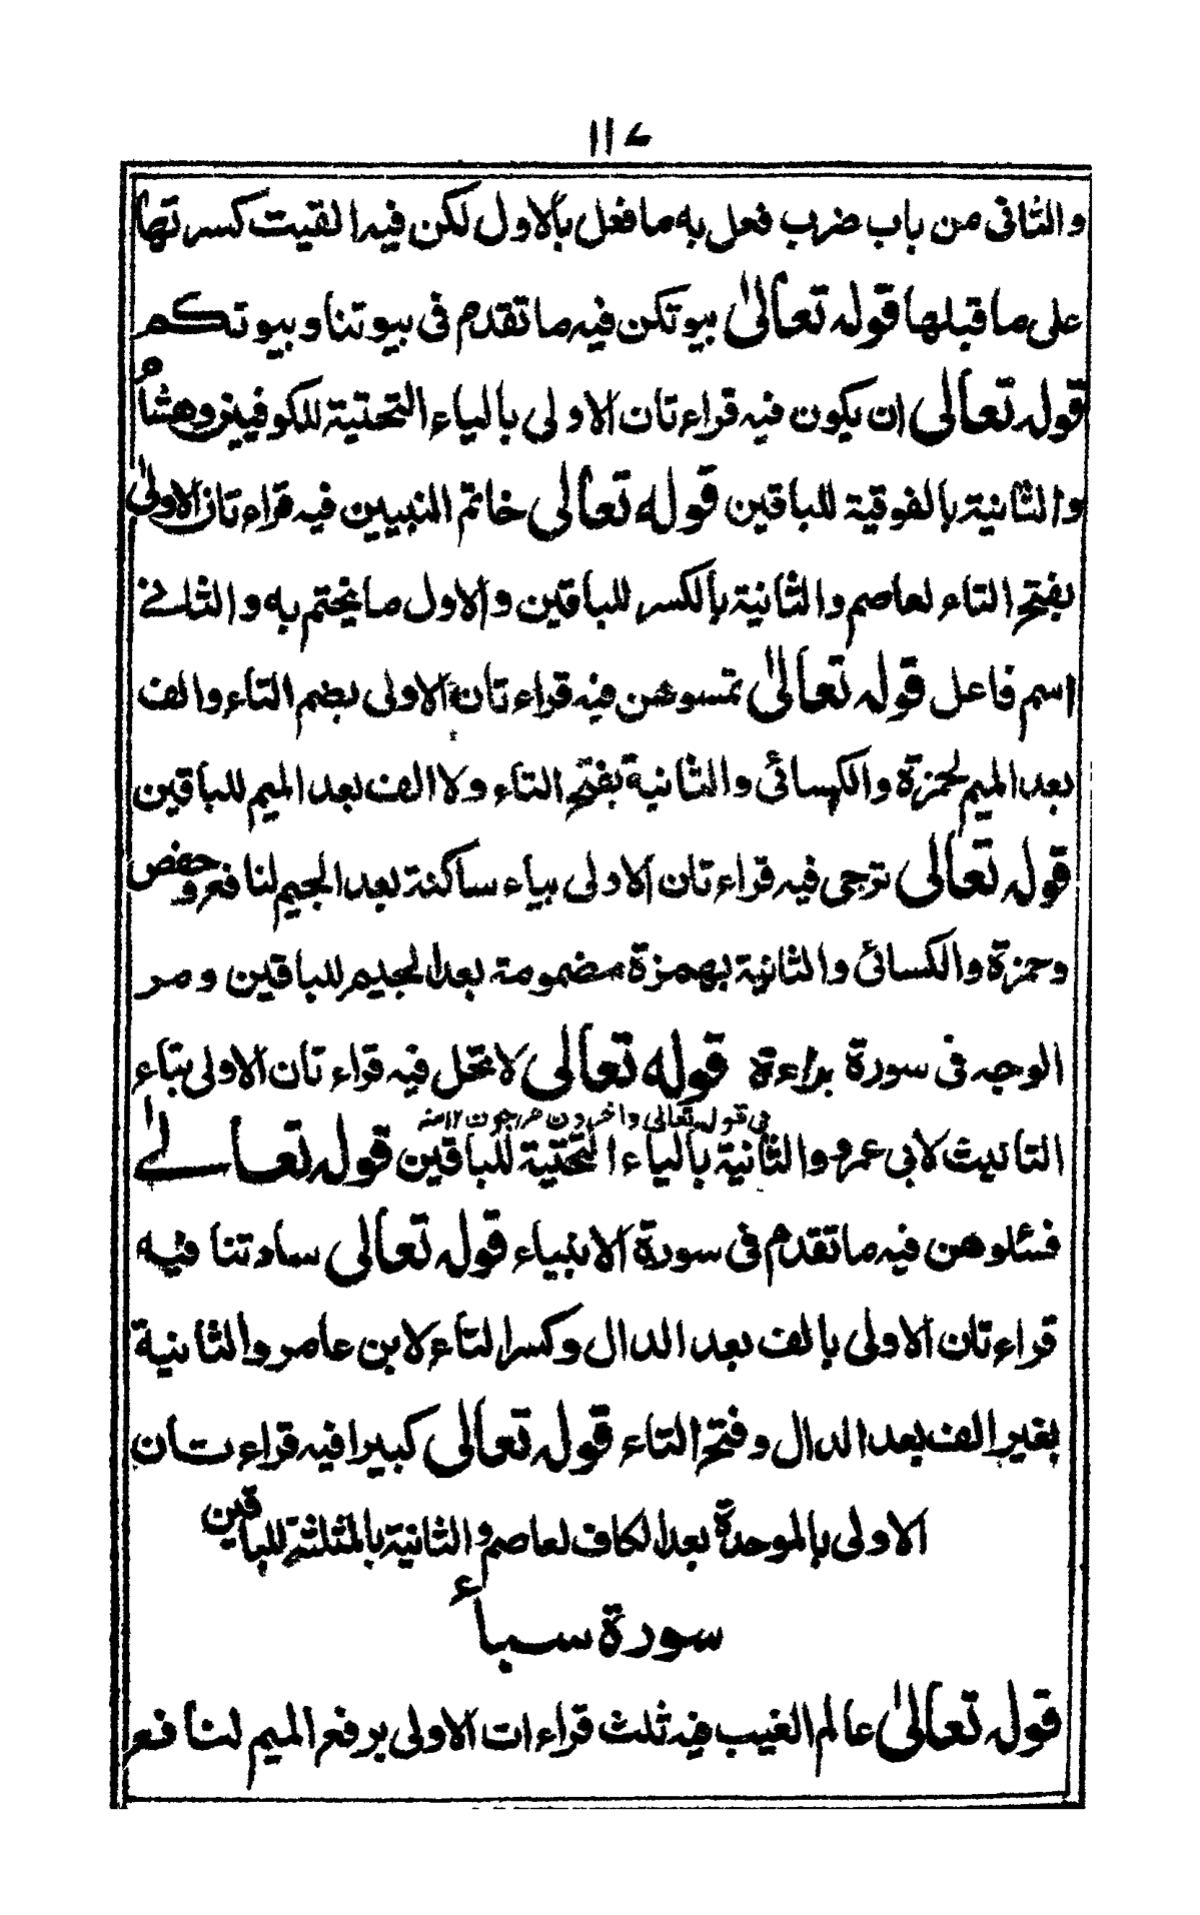 ١١٤
والثانى من باب ضرب فعل به ما فعل بالاول لكن فيه القيت كسرتها
على ما قبلها قوله تعالىٰ بيوتكن فيه ما تقدم فى بيوتنا وبيوتكم
قوله تعالى ان يكون فيه قراءتان الاولى بالياء التحتية للكوفيين وهشام
والثانية بالفوقية للباقين قوله تعالى خاتم النبيين فيه قراءتان الاولىٰ
بفتح التاء لعاصم والثانية بالكسر للباقين والاول ما يختم به والثانے
اسم فاعل قوله تعالىٰ تمسوهن فيه قراءتان الاولى بضم التاء والف
بعد الميم لحمزة والكسائى والثانية بفتح التاء ولا الف بعد الميم للباقين
قوله تعالى ترجى فيه قراءتان الاولى بياء ساكنة بعد الجيم لنافع وحفص
وحمزة والكسائى والثانية بهمزة مضمومة بعد الجيم للباقين ومر
الوجه فى سورة براءة قوله تعالى لا تحل فيه قراءتان الاولى بتاء
فى قوله تعالى واخرون مرجون ١٢ منه
التانيث لابى عمرو والثانية بالياء التحتية للباقين قوله تعالےٰ
فسئلوهن فيه ما تقدم فى سورة الانبياء قوله تعالى سادتنا فيه
قراءتان الاولى بالف بعد الدال وكسر التاء لابن عامر والثانية
بغير الف بعد الدال وفتح التاء قوله تعالى كبيرا فيه قراءتان
الاولى بالموحدة بعد الكاف لعاصم والثانية بالمثلثة للباقين
سورة سباء
قوله تعالىٰ عالم الغيب فيه ثلث قراءات الاولى برفع الميم لنافع